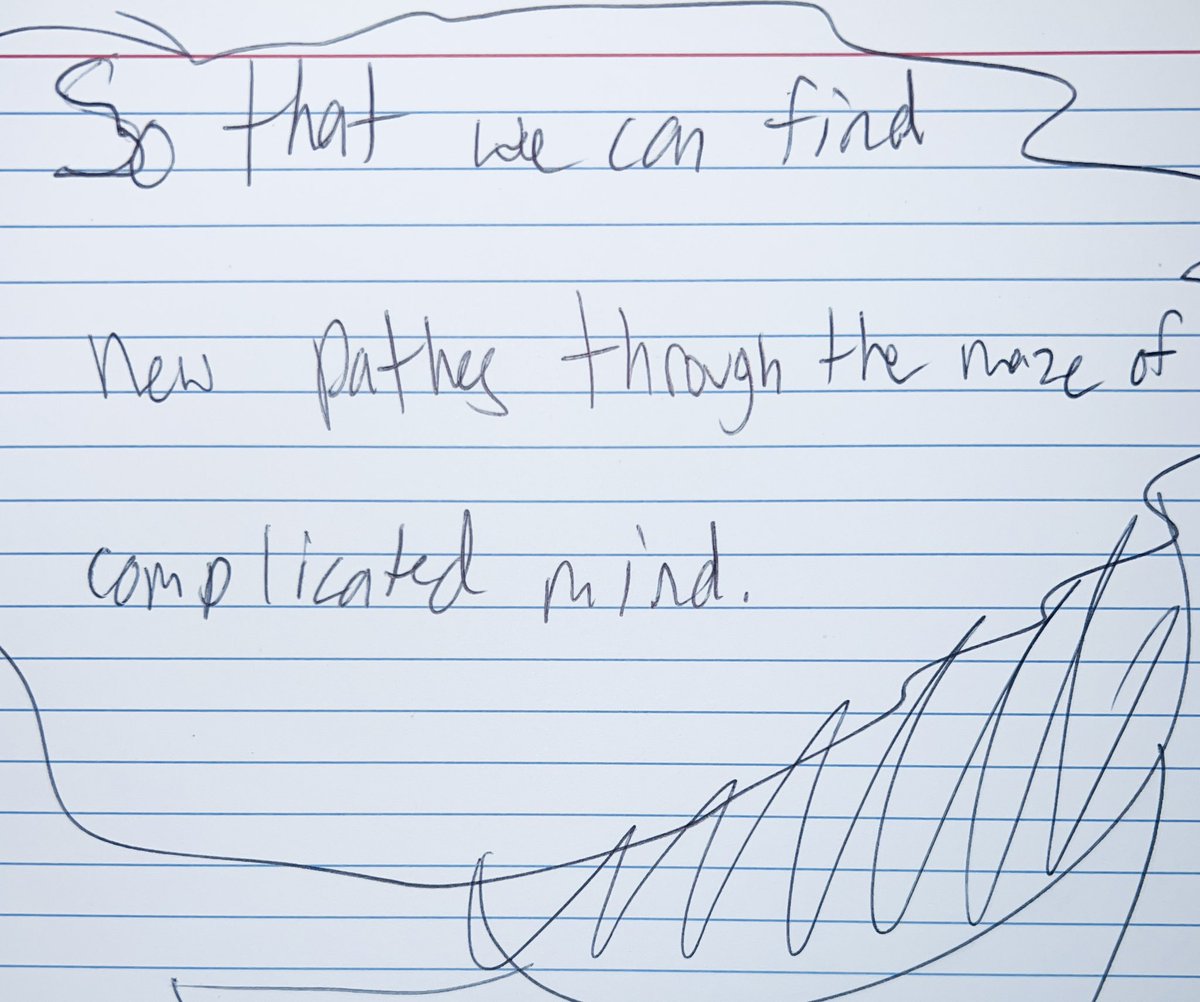 So that we can find
new pathes through the maze of
complicated mind.